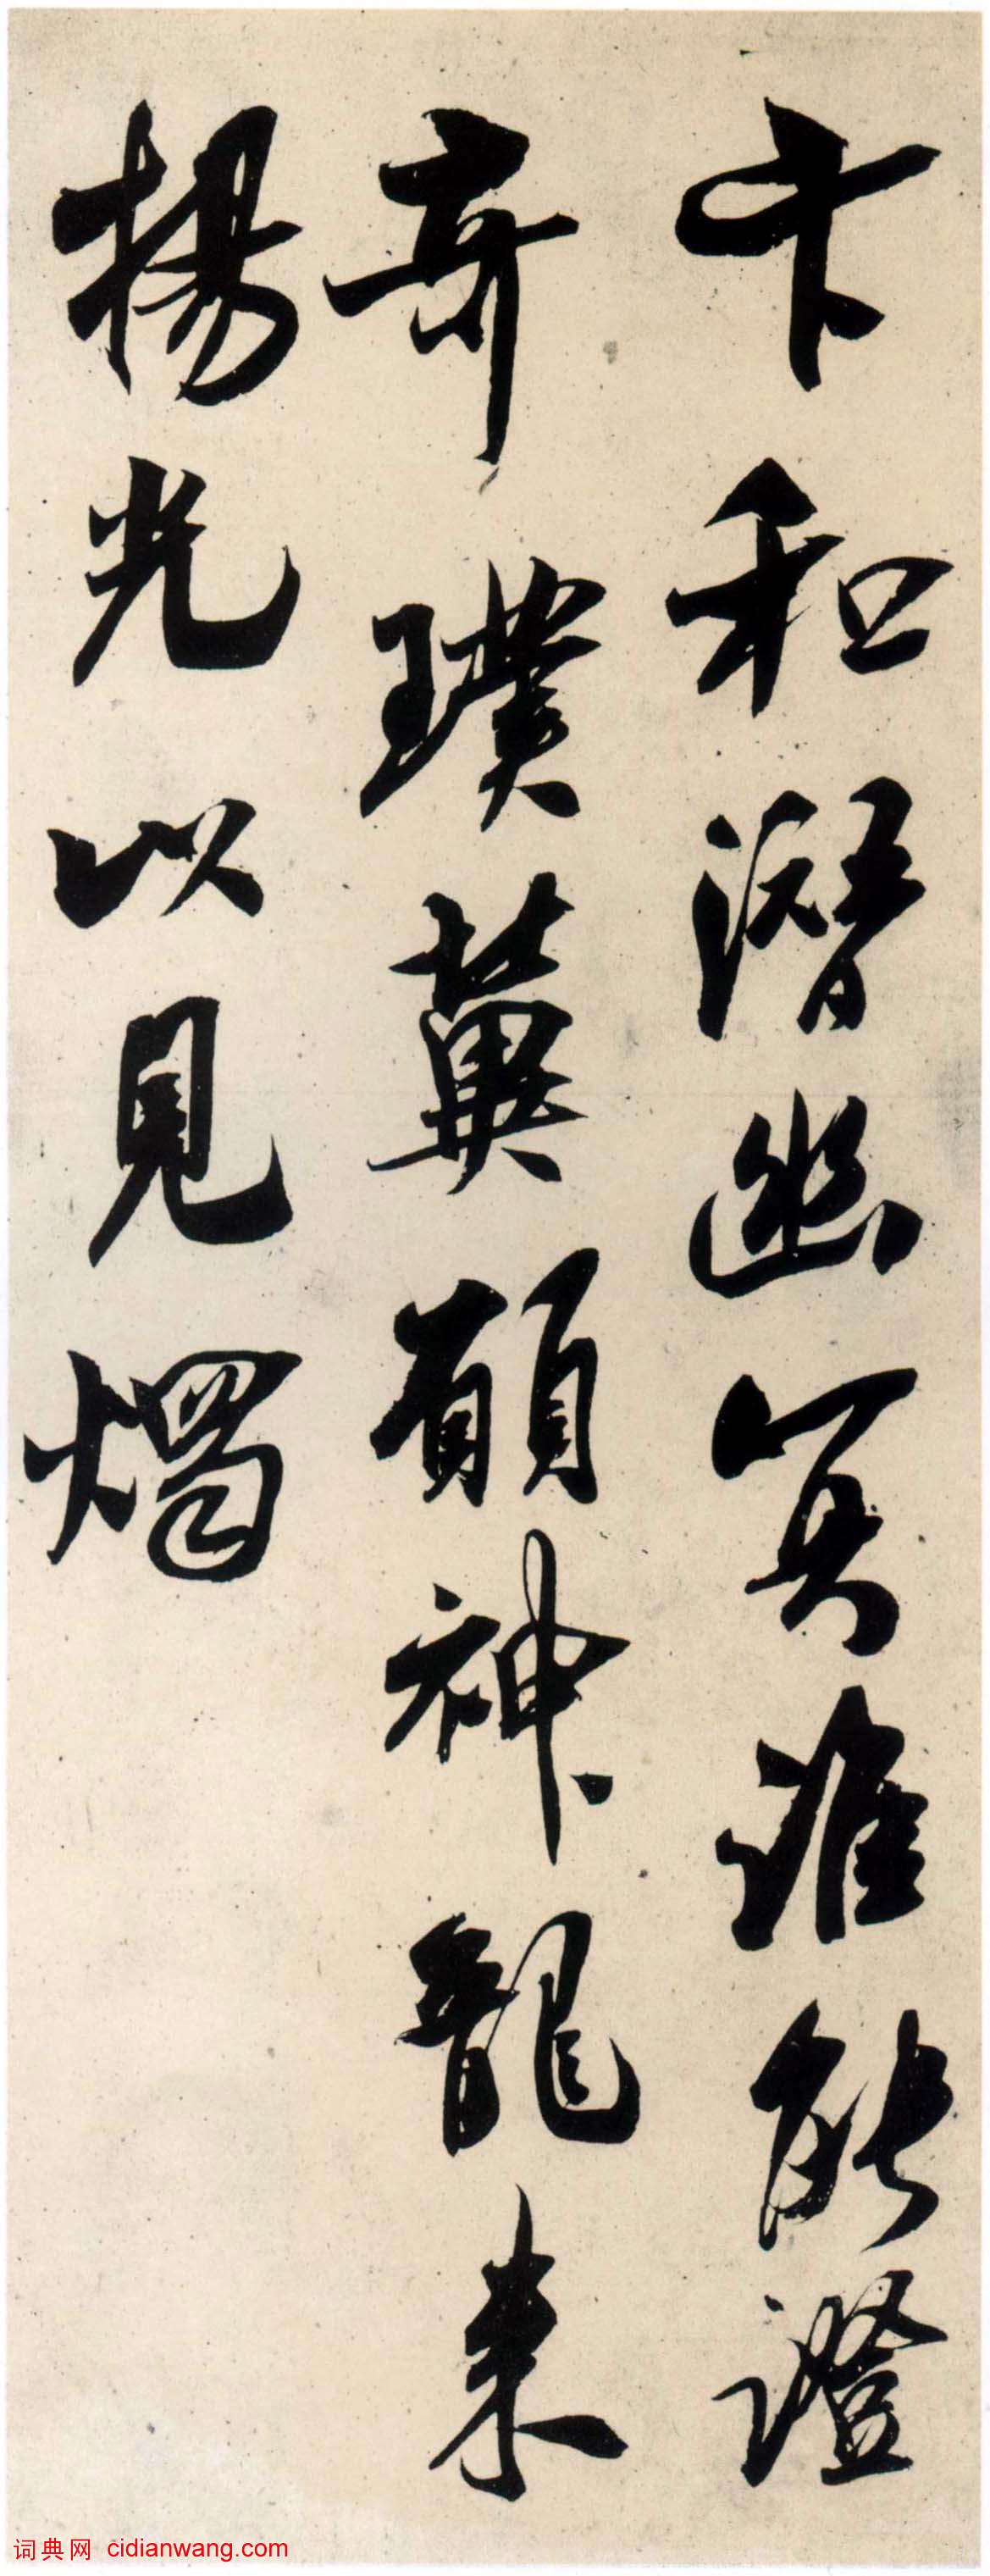 卞和潛幽冥誰能證
奇璞冀願神龍来
揚光以見燭
词典网 cidianwang.com